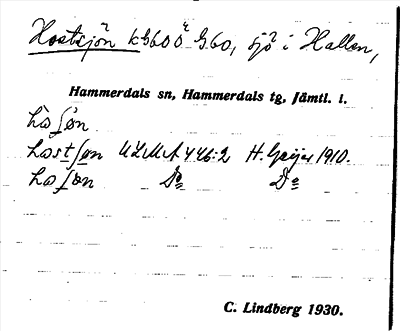 Hostsjön kb600 G.60, sjö i Hallen,
Hammerdals sn, Hammerdals tg, Jämtl. l.
hoſön
hostſøn ULMA 446:2 H. Geijer 1910.
hoſøn Do Do
C. Lindberg 1930.